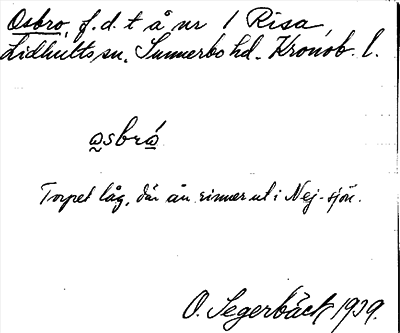 Osbro, f.d. t å nr 1 Risa,
Lidhults sn. Sunnerbo hd. Kronob. l.
o̰sbró̲
Torpet låg, där ån rinner ut i Nej-sjön.
O. Segerbäck 1939.